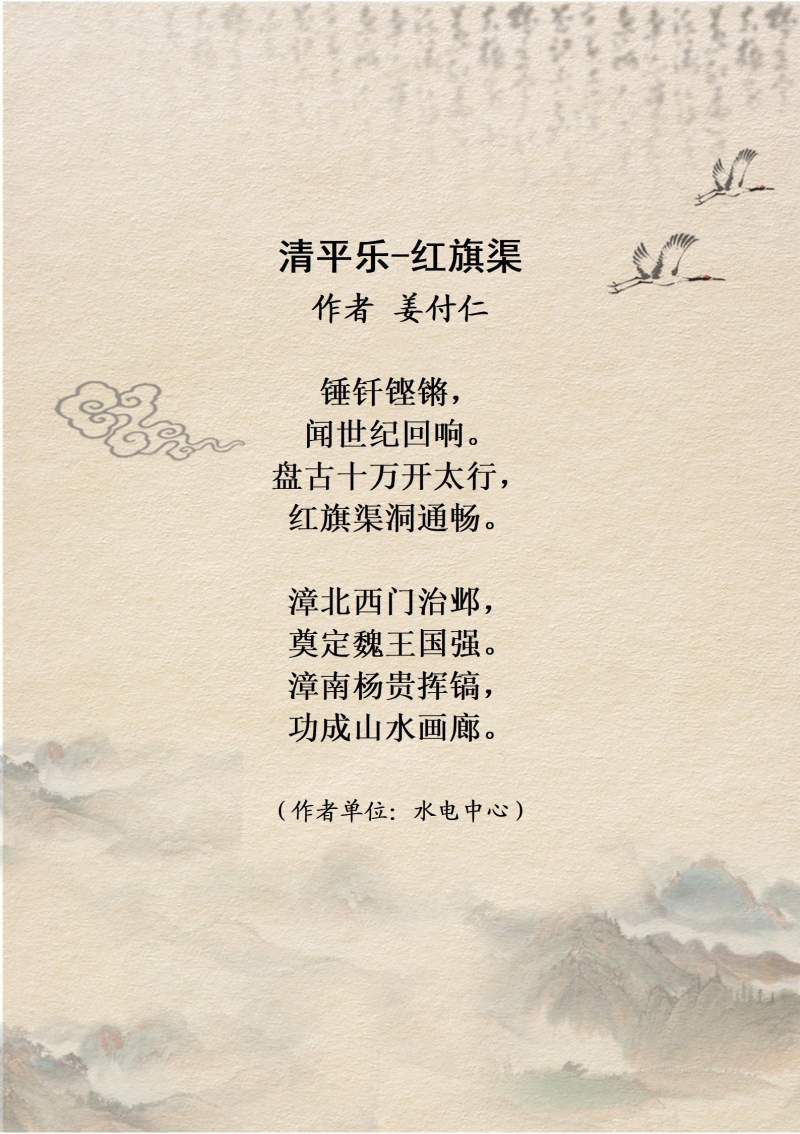 清平乐-红旗渠
作者 姜付仁
锤钎铿锵，
闻世纪回响。
盘古十万开太行，
红旗渠洞通畅。
漳北西门治邺，
奠定魏王国强。
漳南杨贵挥镐，
功成山水画廊。
（作者单位：水电中心）